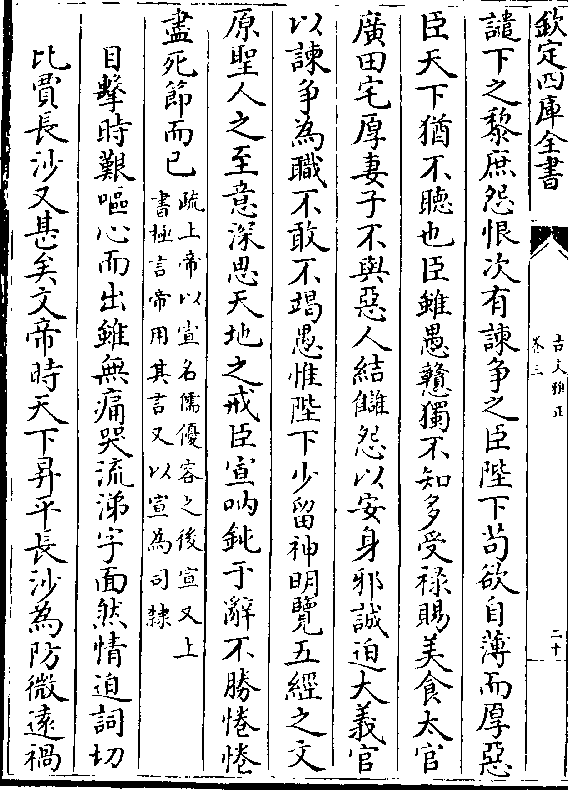 欽定四庫全書
古文雅正
卷三
二十
譴下之黎庶怨恨次有諫爭之臣陛下茍欲自薄而厚惡
臣天下猶不聴也臣雖愚戇獨不知多受祿賜美食太官
廣田宅厚妻子不與惡人結讎怨以安身邪誠迫大義官
以諫爭為職不敢不竭愚惟陛下少留神明覽五經之文
原聖人之至意深思天地之戒臣宣呐鈍于辭不勝惓惓
盡死節而已
疏上帝以宣名儒優容之後宣又上
書極言帝用其言又以宣為司隸
目擊時艱嘔心而出雖無痛哭流涕字面然情迫詞切
比賈長沙又甚矣文帝時天下昇平長沙為防微遠禍